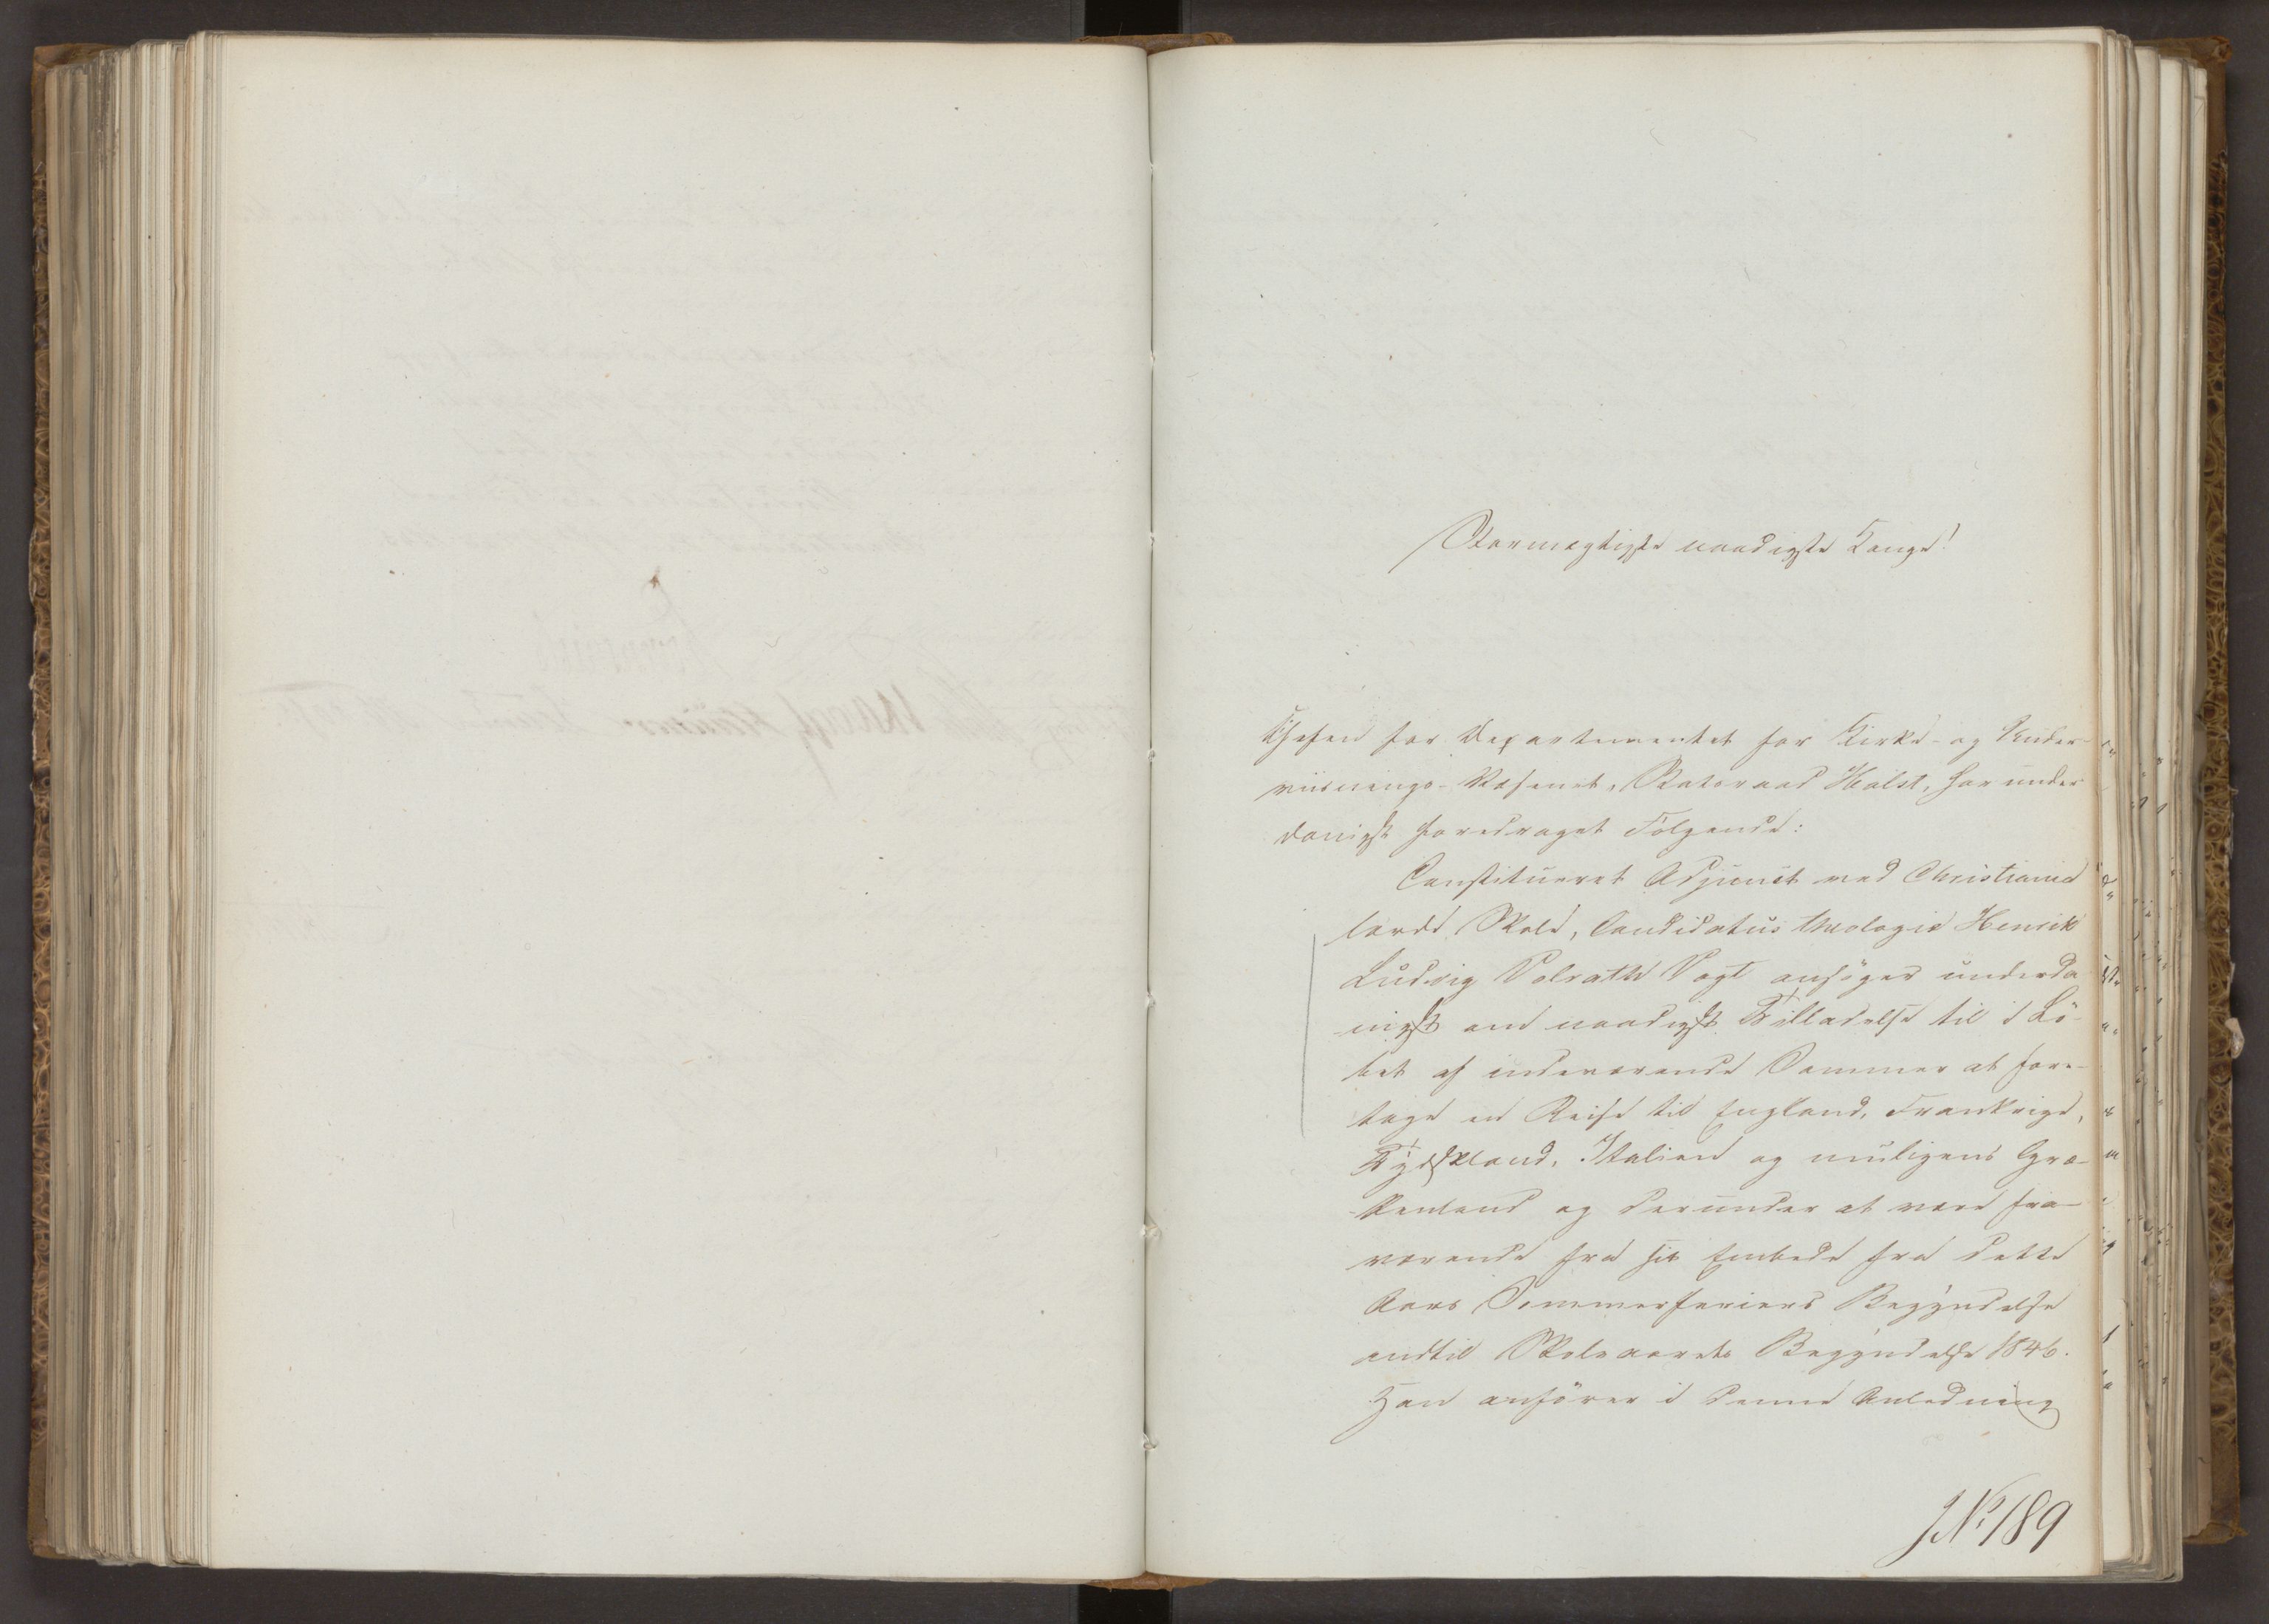 Stormægtigste naadigste Konge!
Chefen for Departementet for Kirke- og Under-
viisnings-Væsenet, Statsraad Holst, har under-
danigst foredraget Følgende:
Constitueret Adjunct ved Christiania
lærde Skole, Candidatus theologiæ Henrik
Ludvig Volrath Vogt ansøger underda-
nigst om naadigst Tilladelse til i Lö-
bet af indeværende Sommer at fore-
tage en Reise til England, Frankrige,
Tydskland, Italien og muligens Græ-
kenland og derunder at være fra-
værende fra sit Embede fra dette
Aars Sommerferiers Begyndelse
indtil Skoleaarets Begyndelse 1846.
Han anförer i denne Anledning
J.No 189